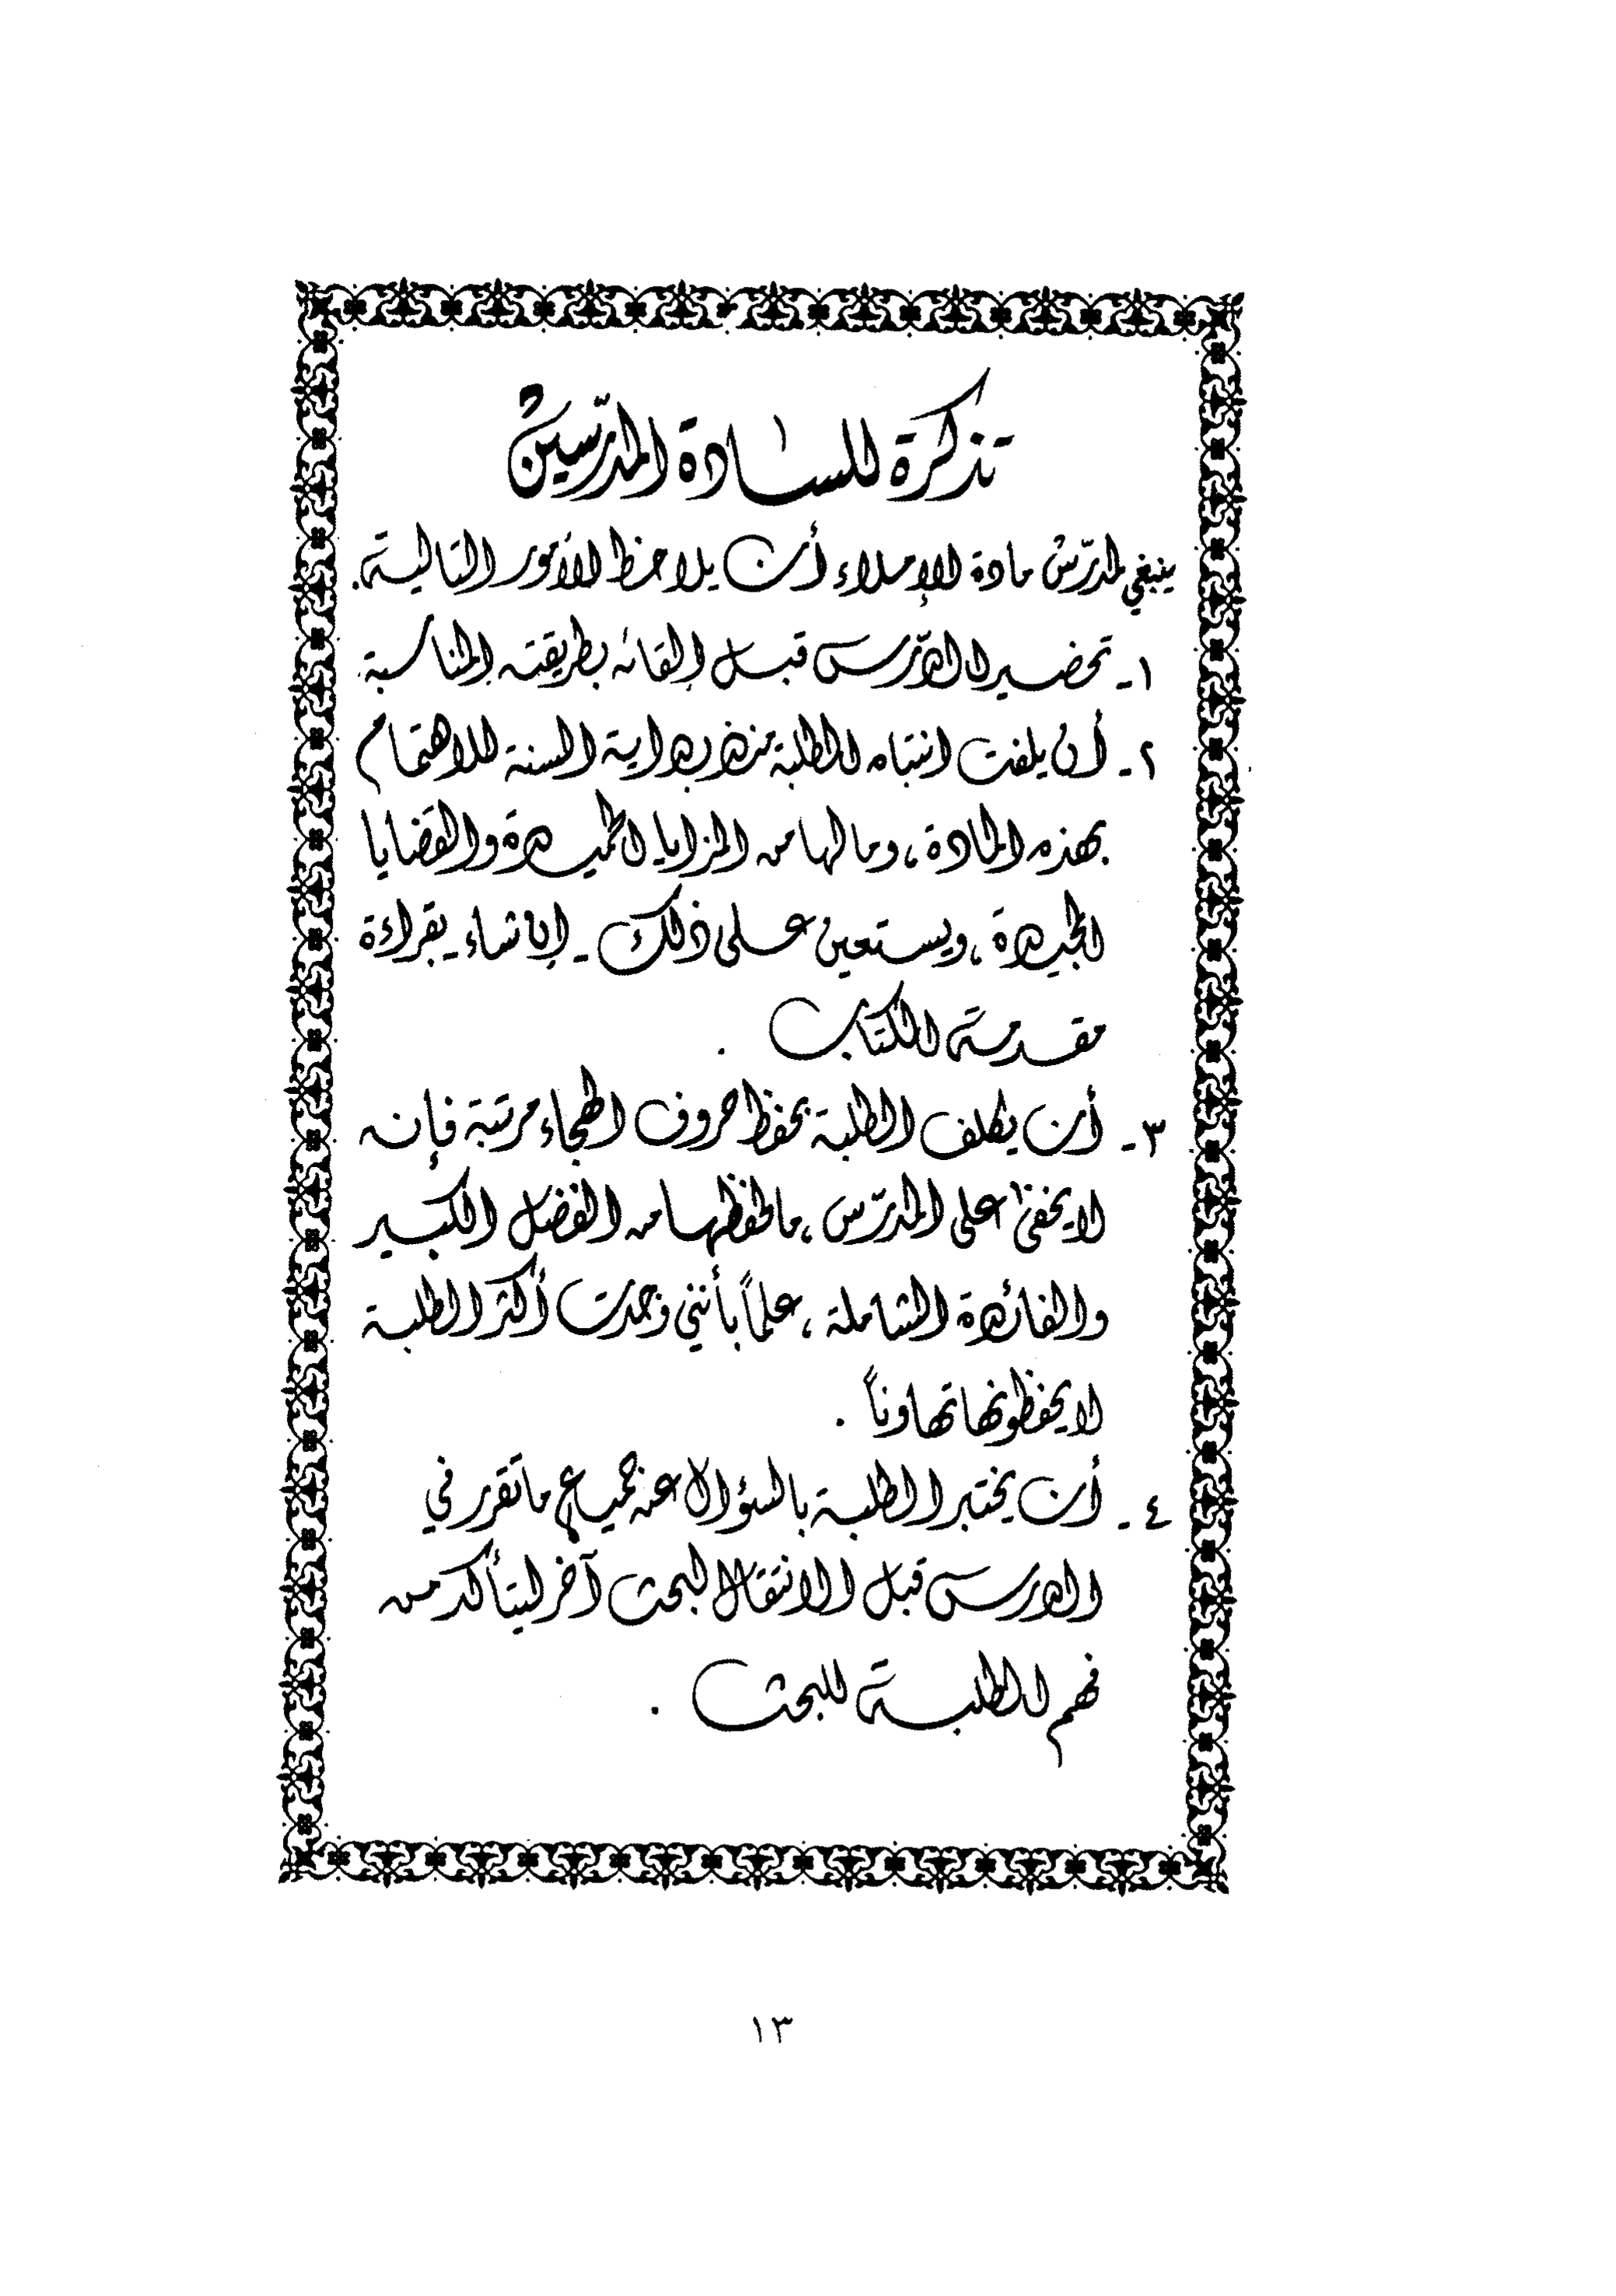 تذكرة للسادة المدرّسين
ينبغي لمدرّس مادة الإملاء أن يلاحظ الأمور التالية.
١- تحضير الدّرس قبل إلقائه بطريقته المناسبة.
٢- أن يلفت انتباه الطلبة منذ بداية السنة للاهتمام
بهذه المادة، وما لها من المزايا الحميدة والقضايا
الجيدة، ويستعين على ذلك - إن شاء - بقراءة
مقدمة الكتاب .
٣- أن يكلف الطلبة بحفظ حروف الهجاء مرتبة فإنه
لا يخفى على المدرّس، ما لحفظها من الفضل الكبير
والفائدة الشاملة، علماً بأنني وجدت أكثر الطلبة
لا يحفظونها تهاوناً .
٤- أن يختبر الطلبة بالسؤال عن جميع ما تقرر في
الدرس قبل الانتقال لبحث آخر ليتأكد من
فهم الطلبة للبحث .
١٣